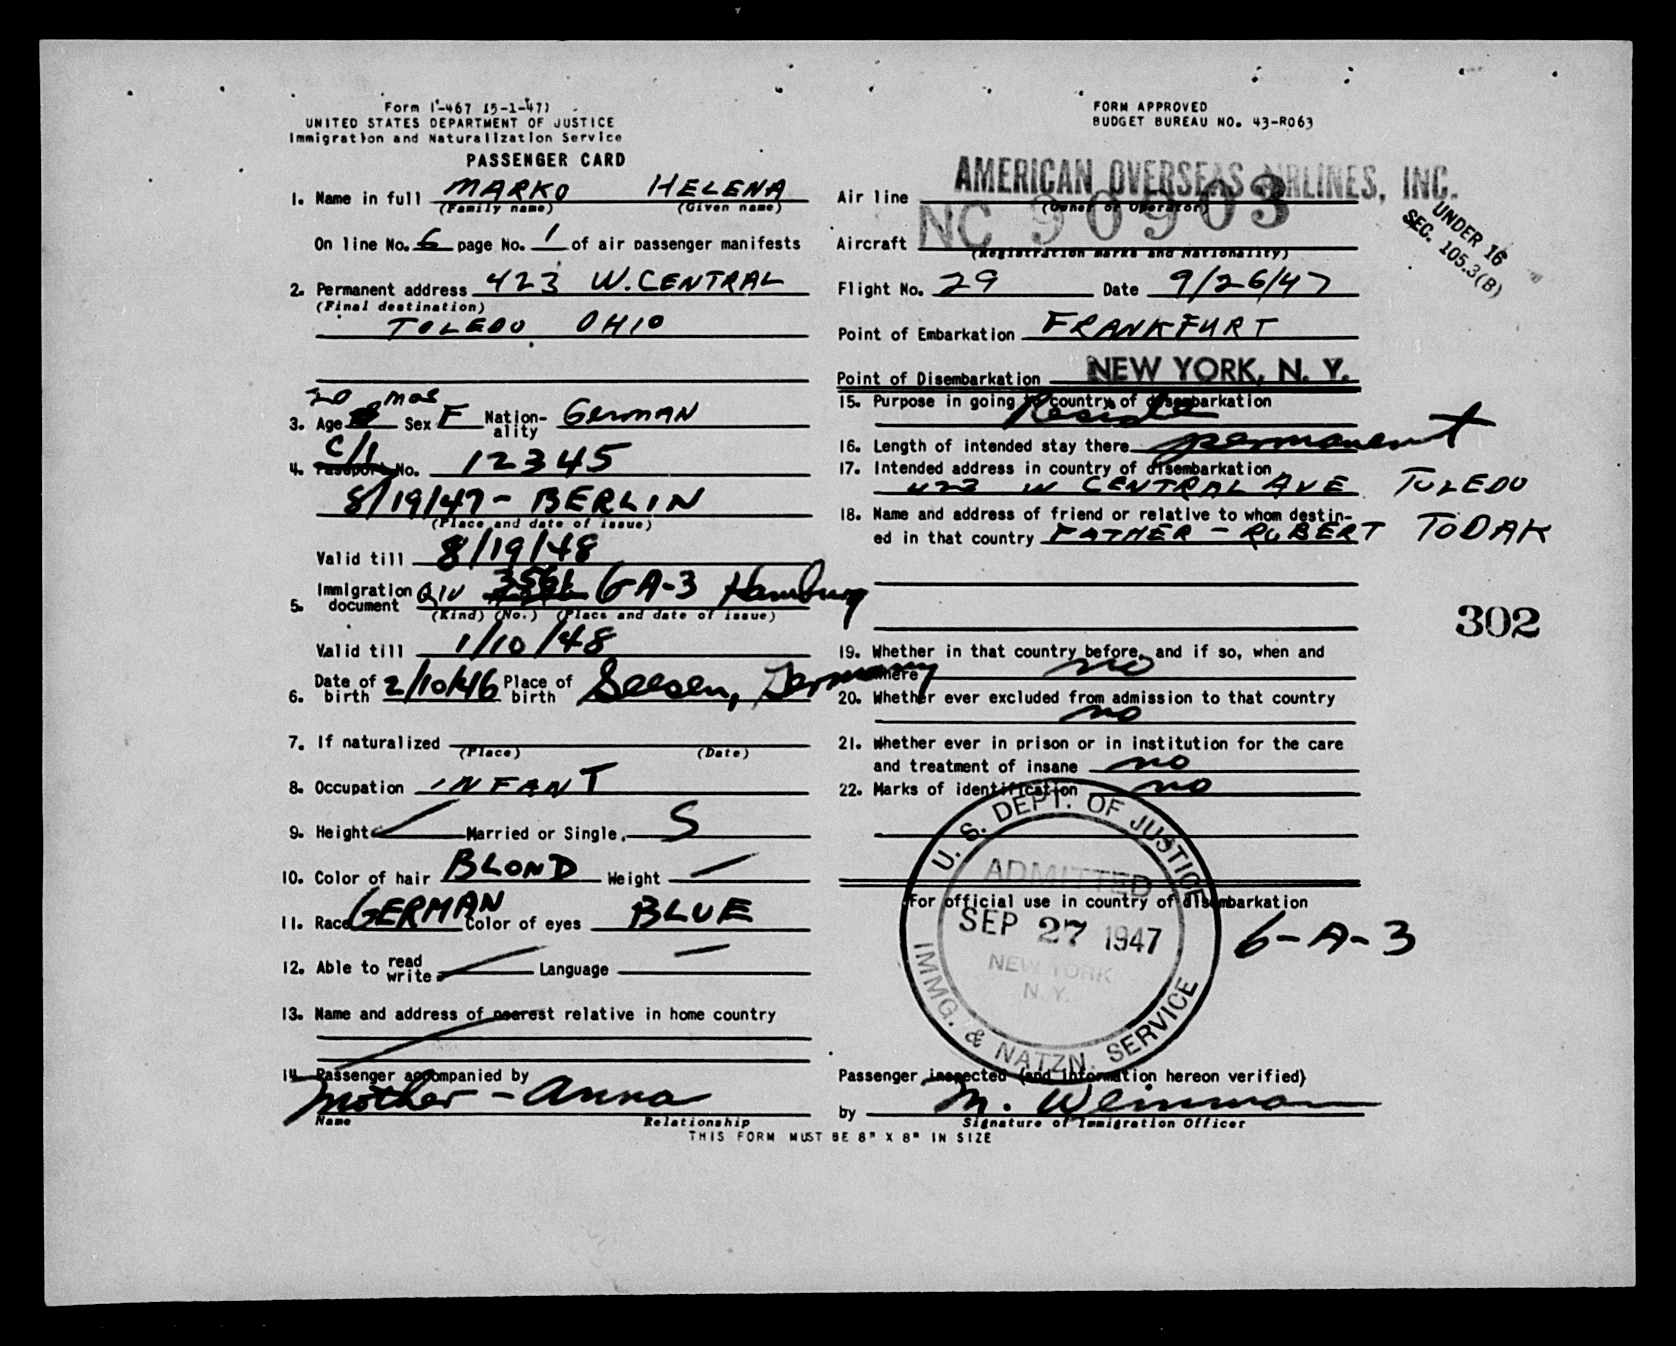 Form I-467 (5-1-47)
UNITED STATES DEPARTMENT OF JUSTICE
Immigration and Naturalization Service
PASSENGER CARD
1. Name in full MARKO HELENA
(Family name) (Given name)
On line No. 6 page No. 1 of air passenger manifests
2. Permanent address 423 W. CENTRAL
(Final destination)
TOLEDO OHIO
20 mos
3. Age Sex F Nation-ality GERMAN
C/I
4. Passport No. 12345
8/19/47 - BERLIN
(Place and date of issue)
Valid till 8/19/48
5. Immigration document QIV 6-A-3 Hamburg
(Kind) (No.) (Place and date of issue)
Valid till 1/10/48
6. Date of birth 2/10/46 Place of birth Seesen, Germany
7. If naturalized
(Place) (Date)
8. Occupation INFANT
9. Height Married or Single, S
10. Color of hair BLOND Weight —
11. Race GERMAN Color of eyes BLUE
12. Able to read write Language —
13. Name and address of nearest relative in home country
14. Passenger accompanied by
Mother - Anna
Name Relationship
THIS FORM MUST BE 8" X 8" IN SIZE
FORM APPROVED
BUDGET BUREAU NO. 43-R063
Air line AMERICAN OVERSEAS AIRLINES, INC.
(Owner or Operator)
Aircraft NC 90903
(Registration marks and Nationality)
UNDER 16
SEC. 105.3(B)
Flight No. 29 Date 9/26/47
Point of Embarkation FRANKFURT
Point of Disembarkation NEW YORK, N. Y.
15. Purpose in going to country of disembarkation
Reside
16. Length of intended stay there permanent
17. Intended address in country of disembarkation
423 W CENTRAL AVE TOLEDO
18. Name and address of friend or relative to whom destin-
ed in that country FATHER - ROBERT TODAK
302
19. Whether in that country before, and if so, when and
where no
20. Whether ever excluded from admission to that country
no
21. Whether ever in prison or in institution for the care
and treatment of insane no
22. Marks of identification no
U. S. DEPT. OF JUSTICE
ADMITTED
For official use in country of disembarkation
SEP 27 1947
6-A-3
NEW YORK
N. Y.
IMMG. & NATZN. SERVICE
Passenger inspected (and information hereon verified)
by M. Weinman
Signature of Immigration Officer